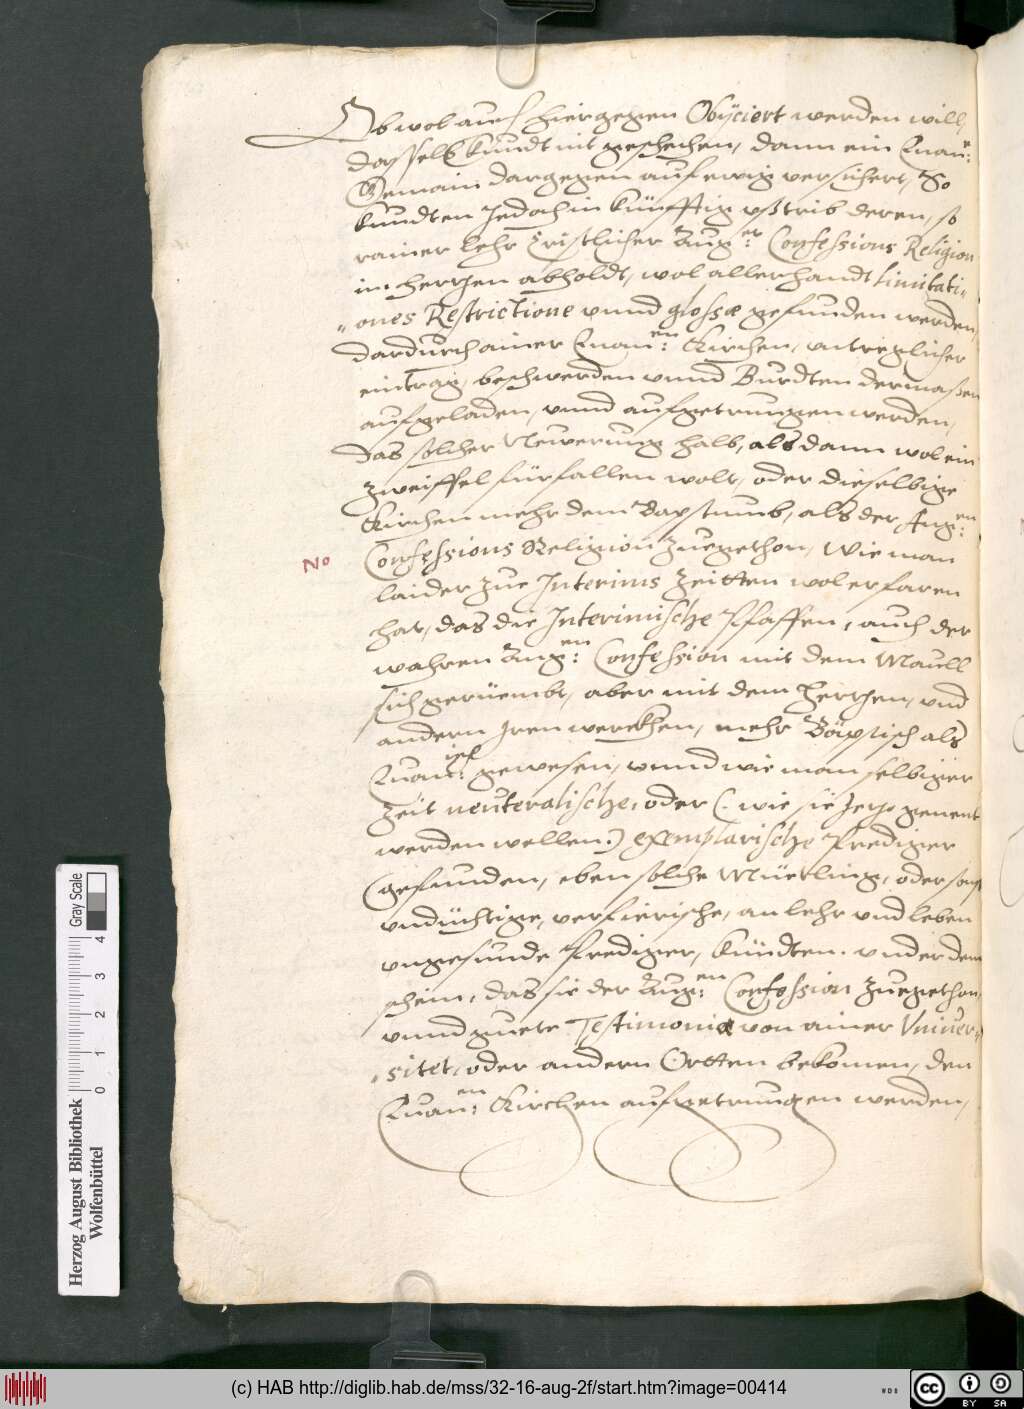 Ob wol auch hiergegen Obijciert werden will,
dasselb kundt nit geschehen, dann ein Euan:
Gemain dargegen auf ewig versichert, So
kundten Jedoch in künfftig vß trib deren, so
rainer lehr Christlicher Aug:er Confessions Religion
im hertzen abholdt, wol allerhandt limitati„
„ones Restrictione vnnd glossæ gefunden werden,
dardurch ainer Euan:en Kirchen, vntreglicher
eintrag, beschwerden vnnd Burdten dermaßen
aufgeladen, vnnd aufgetrungen werden,
das solcher Newerung halb, alsdann wol ein
zweiffel fürfallen wolt, oder dieselbige
Kirchen mehr dem Bapstumb, als der Aug:en
No Confessions Religion zuegethon, Wie man
laider zue Interims Zeitten wol erfaren
hat, das die Interimische Pfaffen, auch der
wahren Aug:en Confession mit dem Maull
sich gerüembt, aber mit dem hertzen, vnd
andern Iren werckhen, mehr Bäpstisch als
Euan:isch gewesen, vnnd wie man selbiger
Zeit neuteralische, oder (: wie sie Jetzo genent
werden wellen:) exemplarische Prediger
gefunden, eben solche Müetling, oder sonst
vndüchtige, verfierische, an lehr vnd leben
vngesunde Prediger, kündten vnder dem
schein, das sie der Aug:en Confession zuegethon,
vnnd guete Testimonia von ainer Vniuer„
„sitet, oder andern Ortten bekomen, den
Euan:en Kirchen aufgetrungen werden,
Gray Scale
0 1 2 3 4
Herzog August Bibliothek
Wolfenbüttel
(c) HAB http://diglib.hab.de/mss/32-16-aug-2f/start.htm?image=00414
WDB
cc BY SA